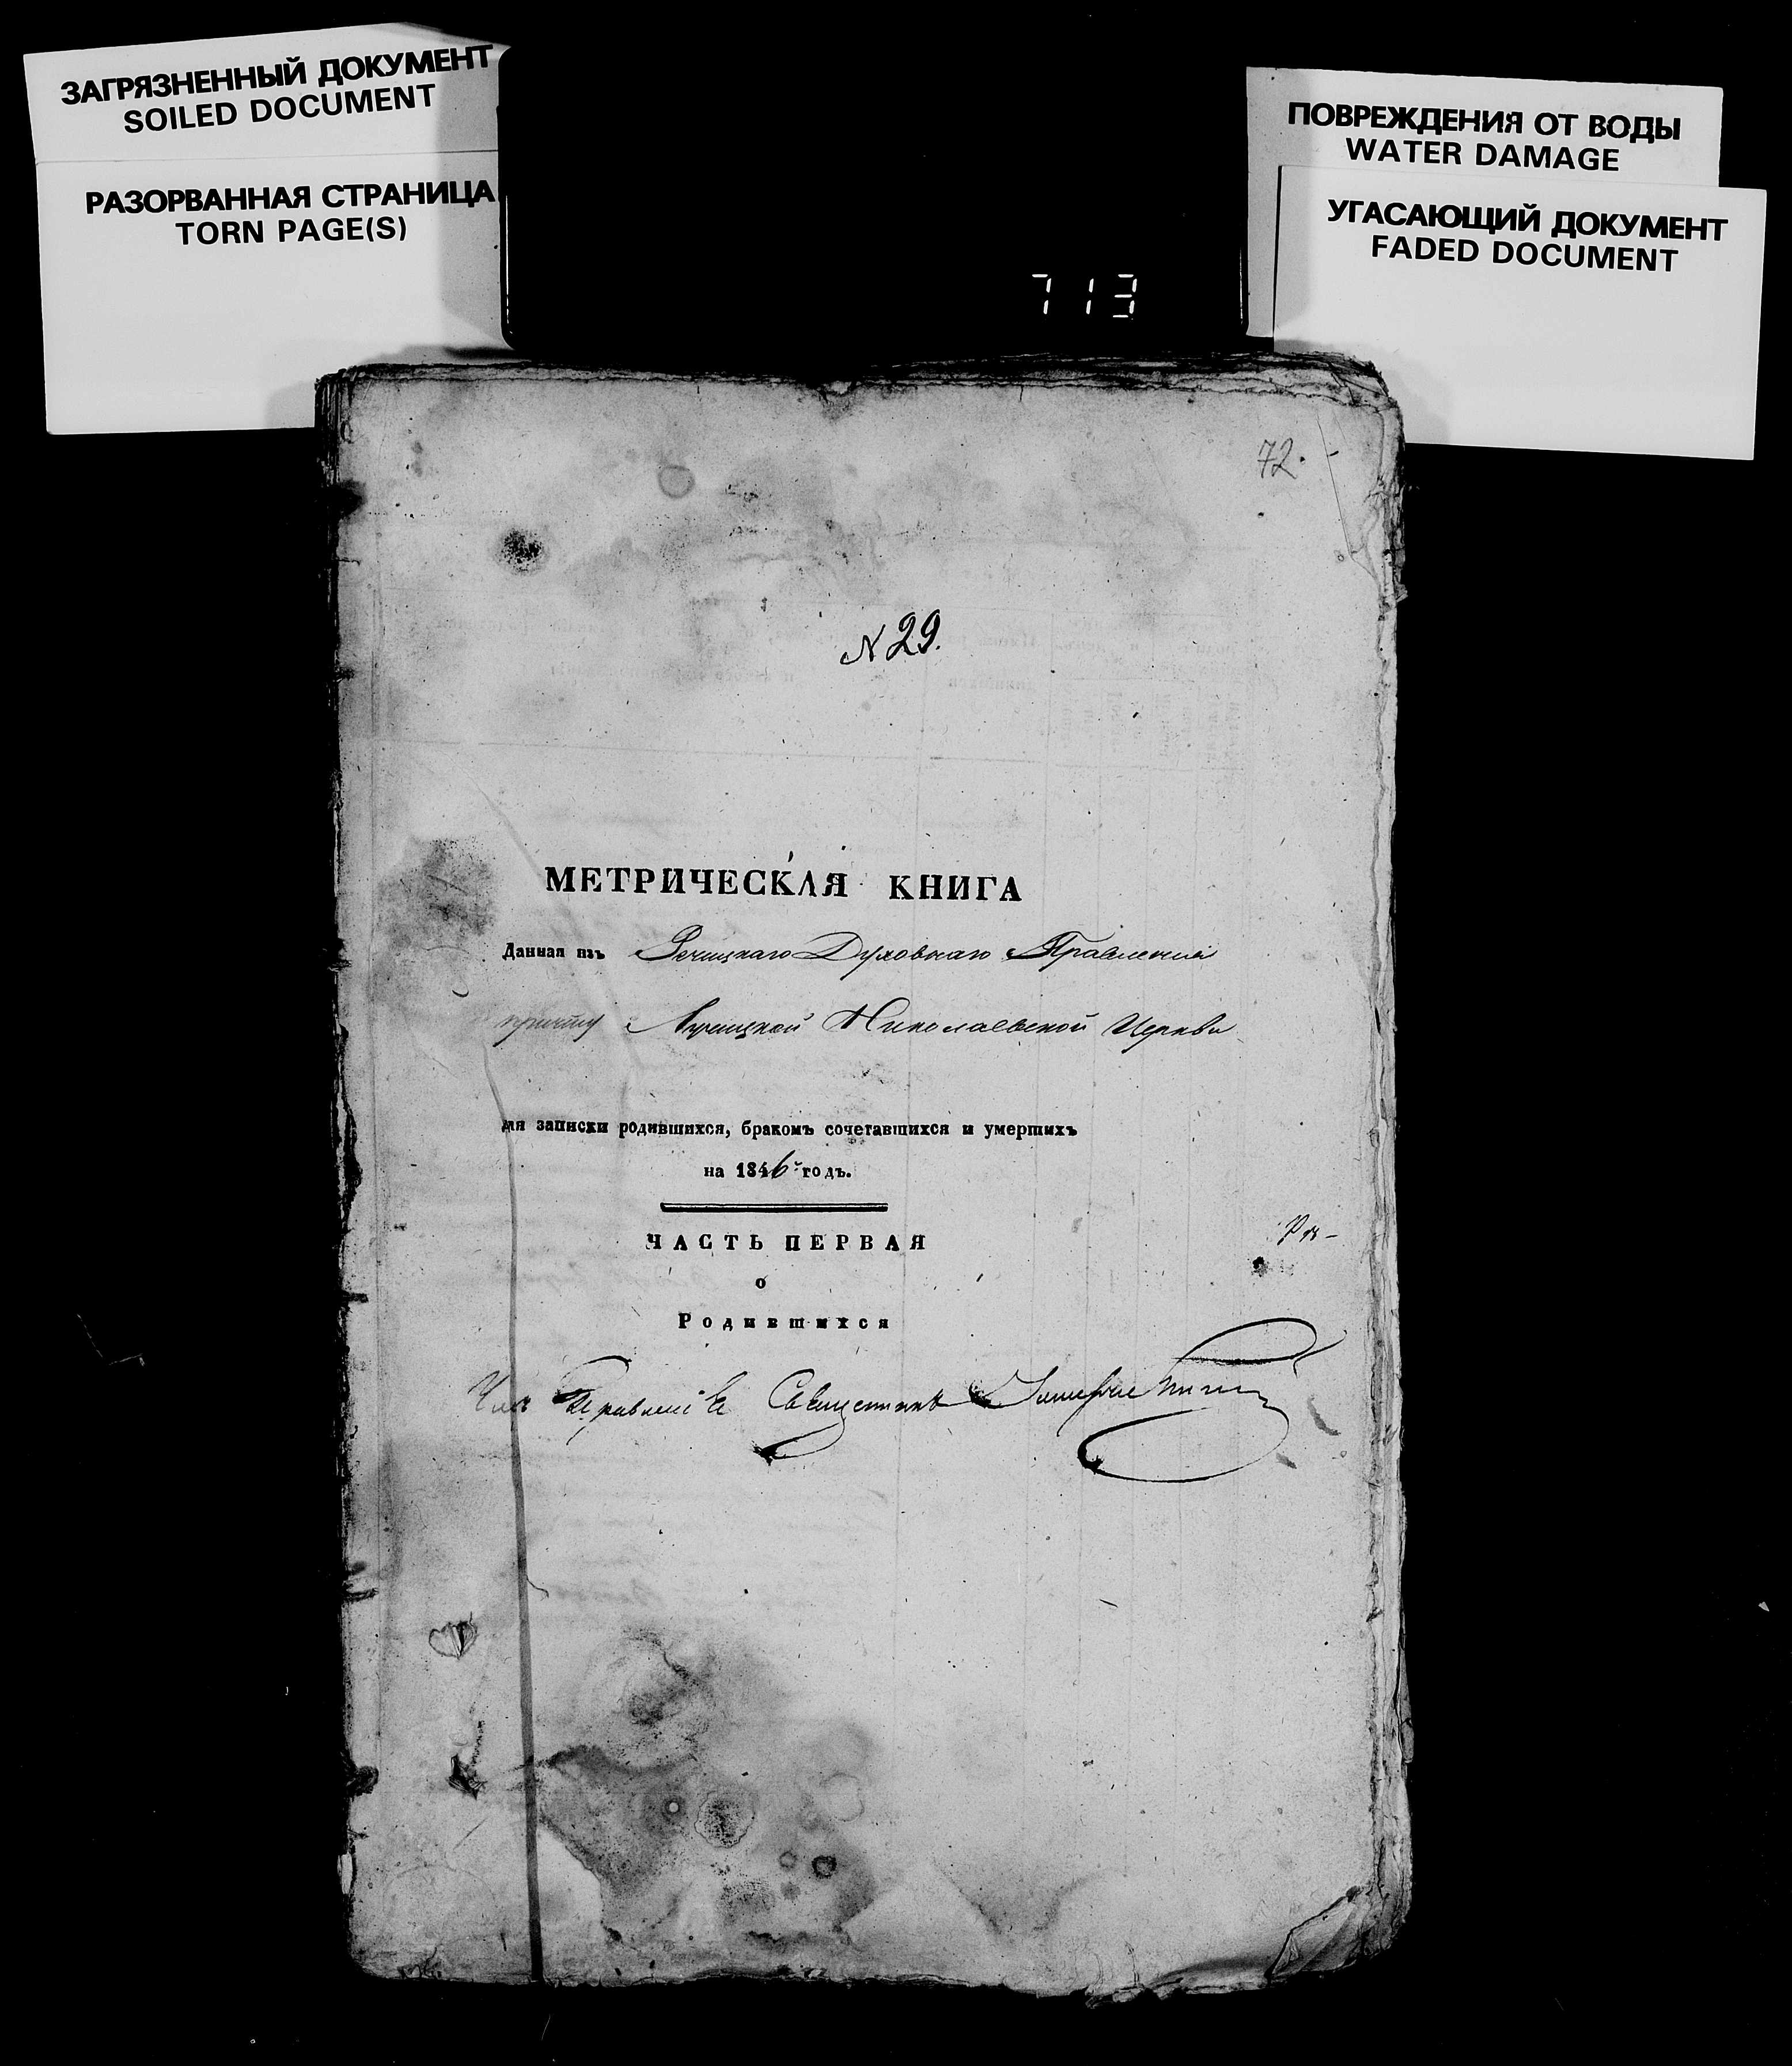 ЗАГРЯЗНЕННЫЙ ДОКУМЕНТ
SOILED DOCUMENT
РАЗОРВАННАЯ СТРАНИЦА
TORN PAGE(S)
ПОВРЕЖДЕНИЯ ОТ ВОДЫ
WATER DAMAGE
УГАСАЮЩИЙ ДОКУМЕНТ
FADED DOCUMENT
713
72.
N 29.
МЕТРИЧЕСКАЯ КНИГА
Данная изъ Речицкаго Духовнаго Правленія
причту Лучицкой Николаевской Церкви
для записки родившихся, бракомъ сочетавшихся и умершихъ
на 1846 годъ.
ЧАСТЬ ПЕРВАЯ
о
Родившихся
Правленія Священникъ